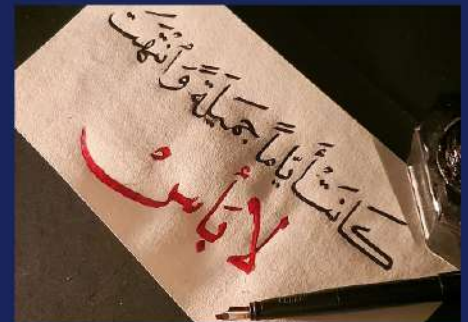 كَانَتْ أَيَّاماً جَمِيلَةً وَانْتَهَتْ
لَا بَأْسْ